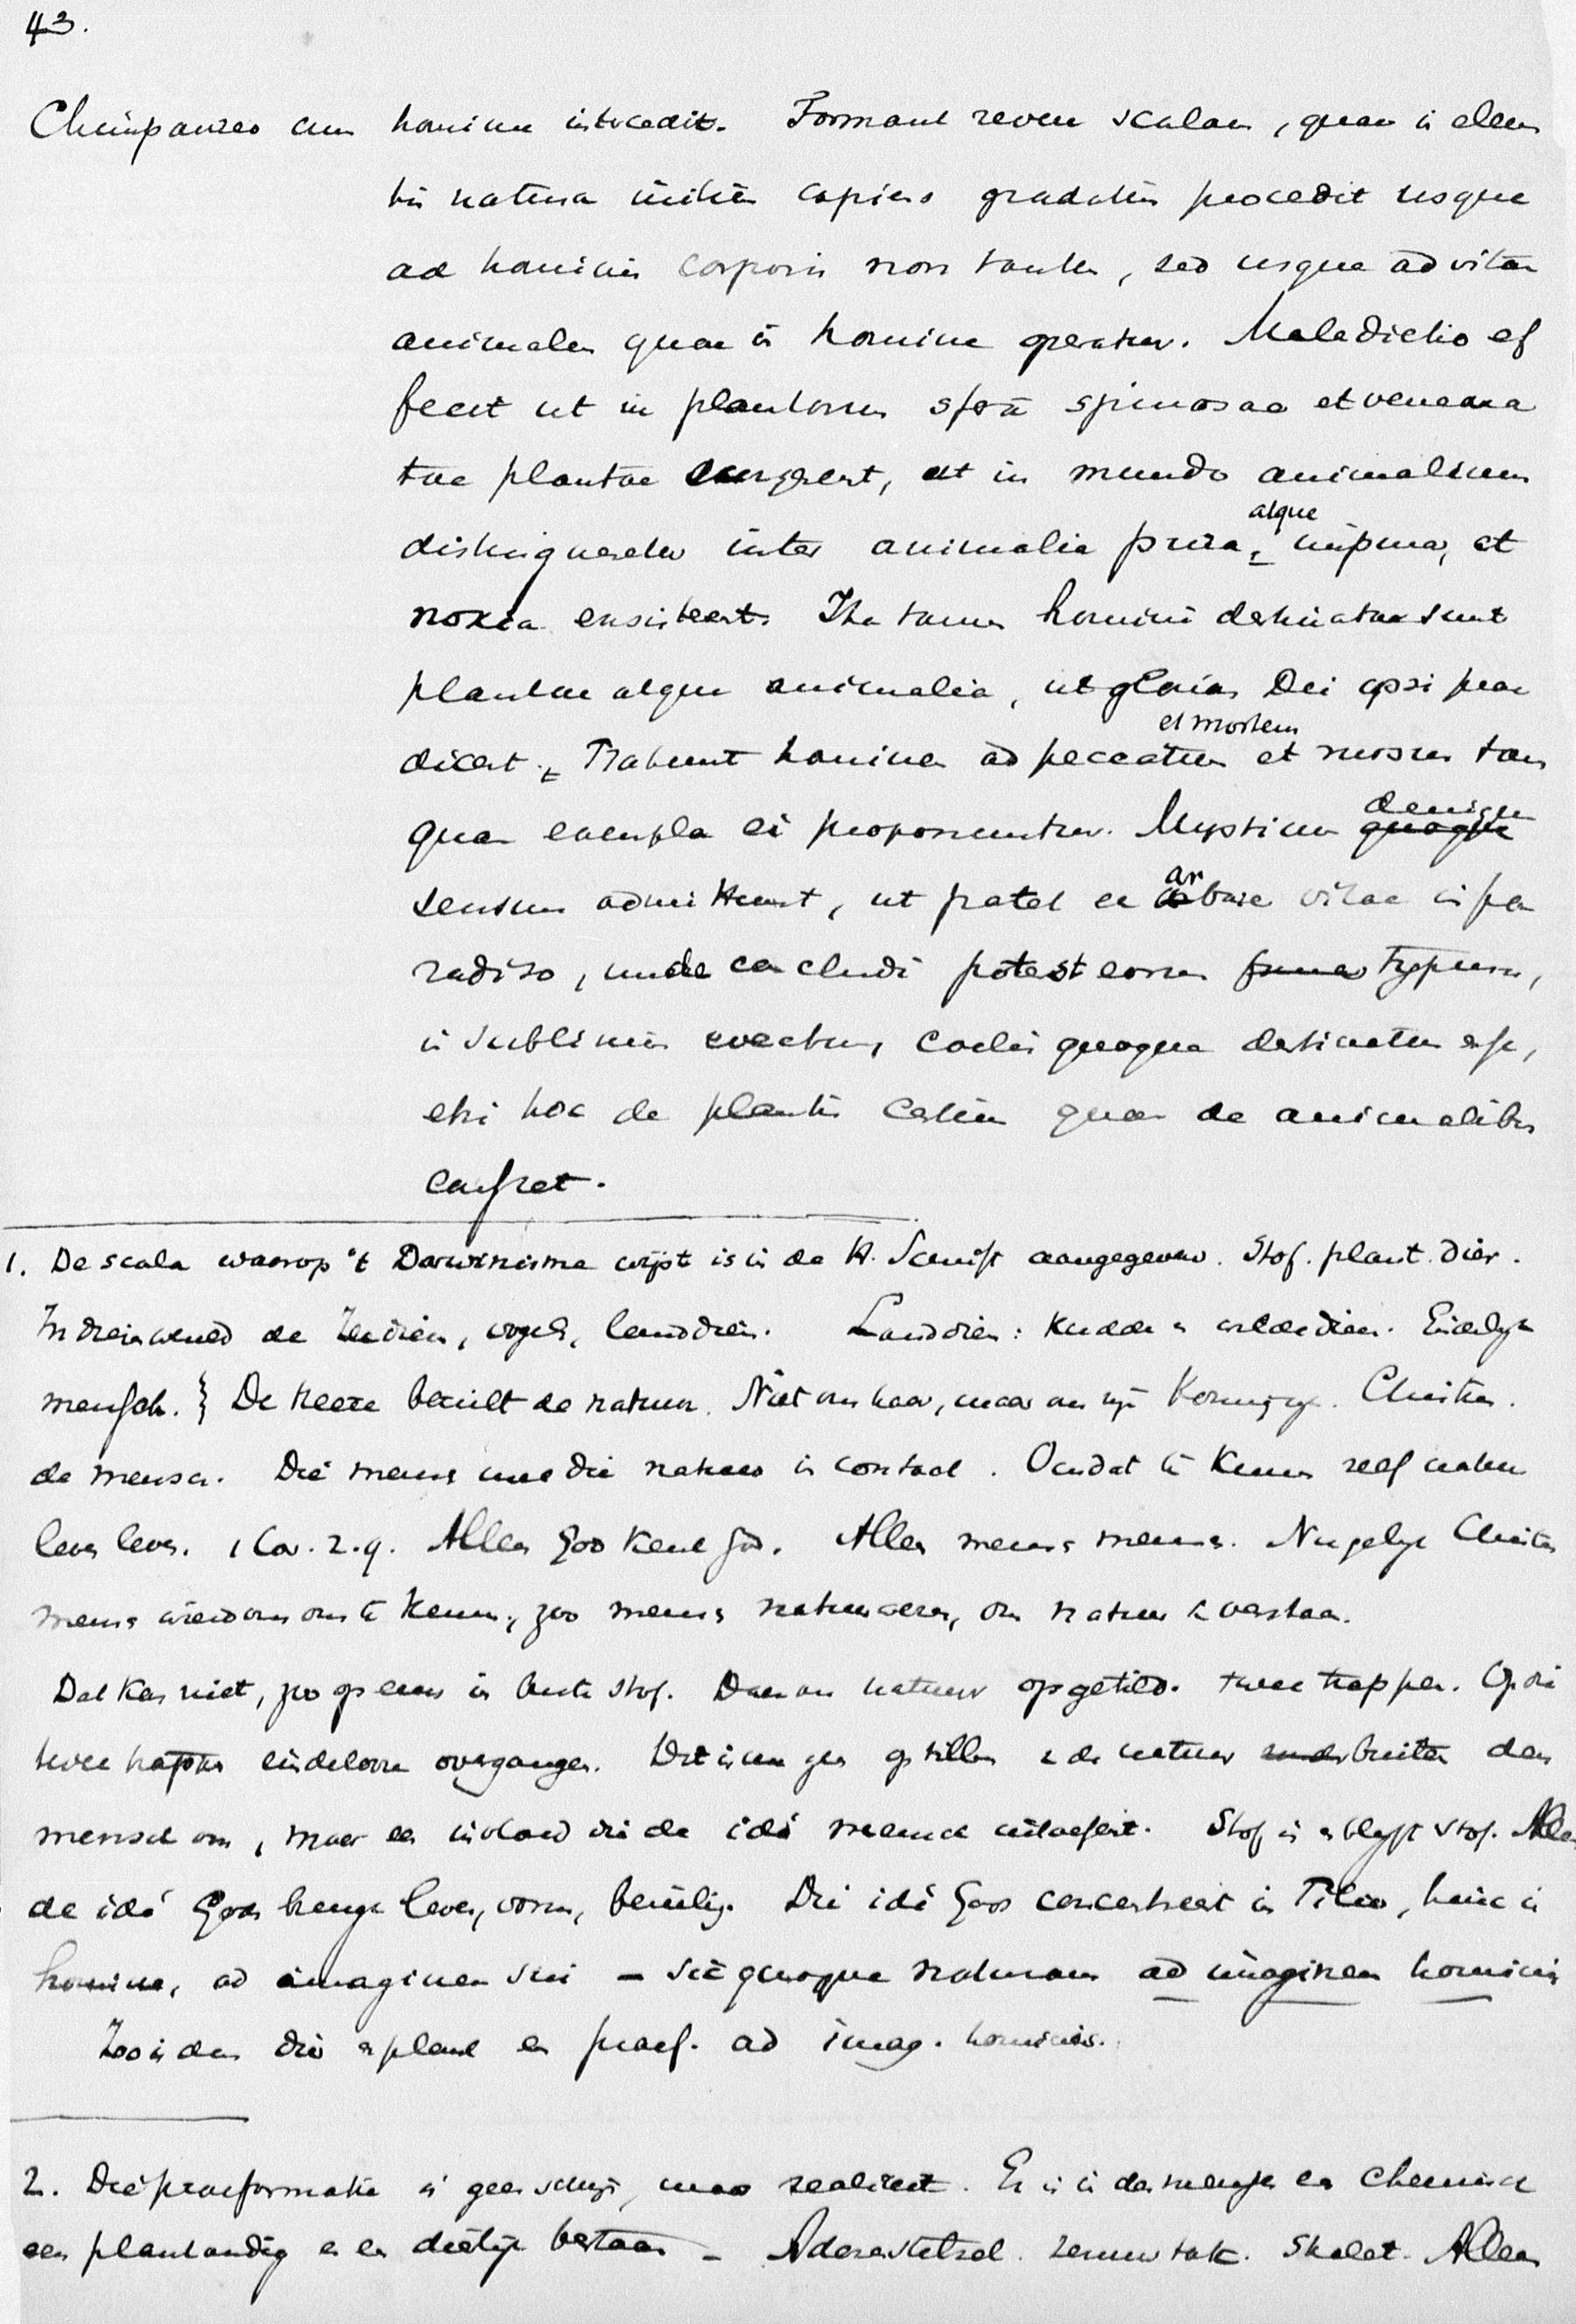 43.
Chimpanzeo cum homine intercedit. Formant revera scalam, quae in elemen
tis natura initium capiens gradatim procedit usque
ad hominis corporis non tantum, sed usque ad vitam
animalem quae in homine operatur. Maledictio ef
fecit ut in plantarum sfera spinosae et venena
tae plantae emergerent, ut in mundo animalium
distingueretur inter animalia pura, atque impura, et
noxia existerent. Ita tamen homini destinatae sunt
plantae atque animalia, ut gloriam Dei ipsi prae
dicent. Trahunt hominem ad peccatum et mortem et
quam exempla ei proponuntur. Mysticum quoque denique
sensum admittunt, ut patet ex arbore vitae in pa
radiso, unde concludi potest eorum typum,
in sublimius evectum, coelis quoque destinatum esse,
etsi hoc de plantis certius quam de animalibus
constet.
1. De scala waarop 't Darwinisme wijst is in de H. Schrift aangegeven. Stof. plant. dier.
In dierenwereld de zeedieren, vogels, landdieren. Landdieren: kudde en wilde dieren. Eindelijk
mensch. } De Heere bezielt de natuur. Niet om haar, maar om zijn Koning. Christus.
de mensch. Die mensch met die natuur in contact. Omdat te kennen zelf natuur
leven leven. 1 Cor. 2.9. Alleen God kent God. Alleen mensch mensch. Nu gelijk Christus
mensch wierd om ons te kennen, zoo mensch natuur wezen, om natuur te verstaan.
Dat kan niet, zoo opeens in brute stof. Daarom natuur opgetild. twee trappen. Op die
twee trappen eindeloze overgangen. Dit is nu geen optillen v. de natuur buiten den
mensch om, maar een invloed die de idé mensch uitoefent. Stof is en blijft stof. Alleen
de idé Gods brengt leven, vorm, bezieling. Die idé Gods concentreert in Filio, hinc in
homine, ad imaginem sui - sic quoque naturam ad imaginem hominis
Zoo is dan dier en plant een praef. ad imag. hominis.
2. Die praeformatie is geen schijn, maar realiteit. Er is in den mensch een chemisch
een plantaardig en een dierlijk bestaan - Aderenstelsel. zenuwtak. Skelet. Alleen